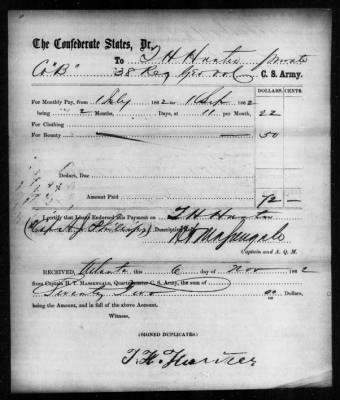 The Confederate States, Dr,
To T H Hunter private
Co "B" 38 Reg Geo vol C. S. Army.
DOLLARS. CENTS.
For Monthly Pay, from 1 July 1862 to 1 Sep 1862
being 2 Months, Days, at 11 per Month, 22
For Clothing
For Bounty 50
Dollars, Due
Amount Paid 72 —
I certify that I have Endorsed this Payment on T H Hunter
Descriptive Roll
H T Massengale
Captain and A. Q. M.
RECEIVED, Atlanta this 6 day of Nov 1862
from Captain H. T. MASSENGALE, Quartermaster C. S. Army, the sum of
Seventy Two 00 Dollars,
being the Amount, and in full of the above Account.
Witness,
(SIGNED DUPLICATES)
T. H. Hunter